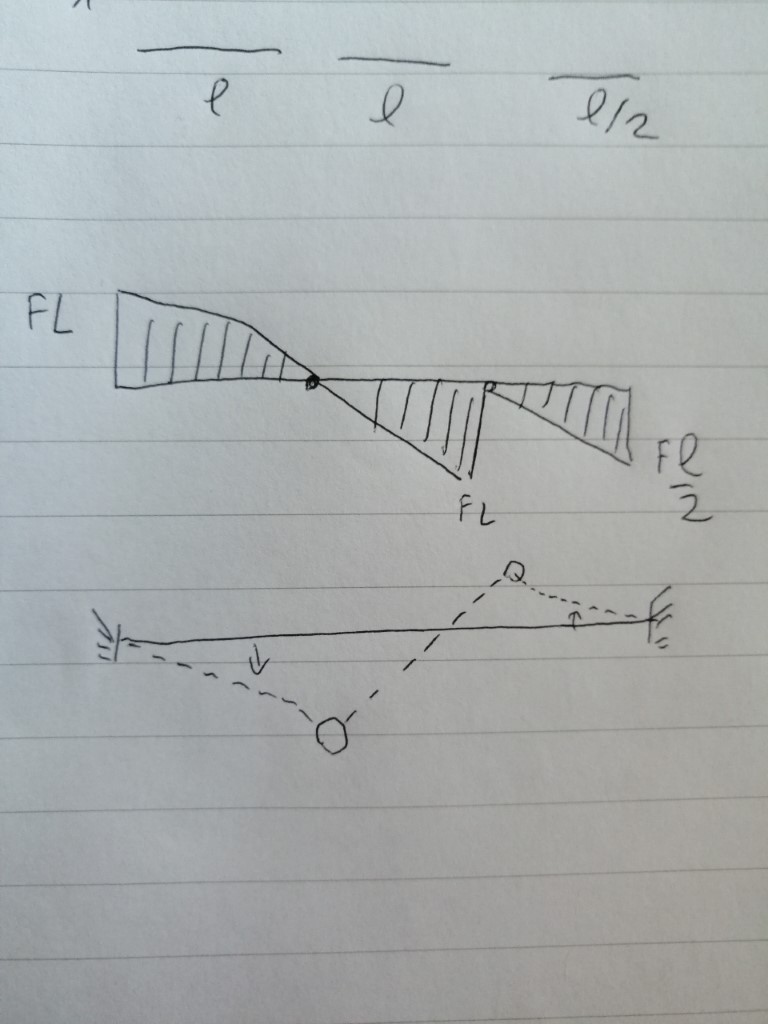 l l l/2
FL
F l/2
FL